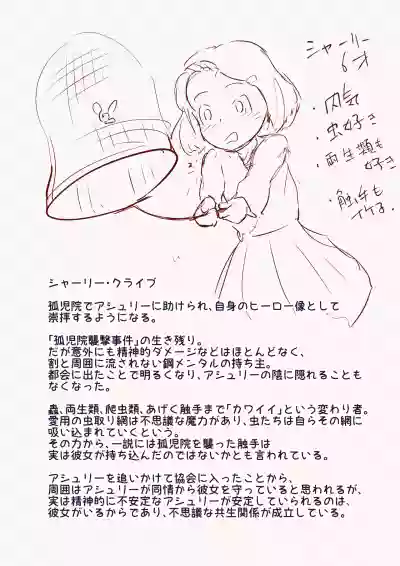 シャーリー
6才
・内気
・虫好き
・両生類も
好き
・触手も
イケる。
シャーリー・クライブ
孤児院でアシュリーに助けられ、自身のヒーロー像として
崇拝するようになる。
「孤児院襲撃事件」の生き残り。
だが意外にも精神的ダメージなどはほとんどなく、
割と周囲に流されない鋼メンタルの持ち主。
都会に出たことで明るくなり、アシュリーの陰に隠れることも
なくなった。
蟲、両生類、爬虫類、あげく触手まで「カワイイ」という変わり者。
愛用の虫取り網は不思議な魔力があり、虫たちは自らその網に
吸い込まれていくという。
その力から、一説には孤児院を襲った触手は
実は彼女が持ち込んだのではないかとも言われている。
アシュリーを追いかけて協会に入ったことから、
周囲はアシュリーが同情から彼女を守っていると思われるが、
実は精神的に不安定なアシュリーが安定していられるのは、
彼女がいるからであり、不思議な共生関係が成立している。